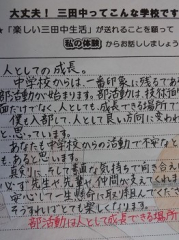 大丈夫！三田中ってこんな学校です
★「楽しい三田中生活」が送れることを願って
私の体験からお話ししましょう
人としての成長。
中学校からは、一番印象に残るであ
部活動が始まります。部活動は、技術面
面だけでなく、人としても、成長できる場所で
僕も入部して、人として良い方向に変われ
と、思っています。
あなたも中学校からの活動で不安なと
も、あると思います。
真剣に、そして素直な気持ちで向き合え
必ず先生や先輩や、仲間が支えてくれま
安心して一生懸命に取り組んでくださ
そうすればとても楽しくなります。
部活動は人として成長できる場所